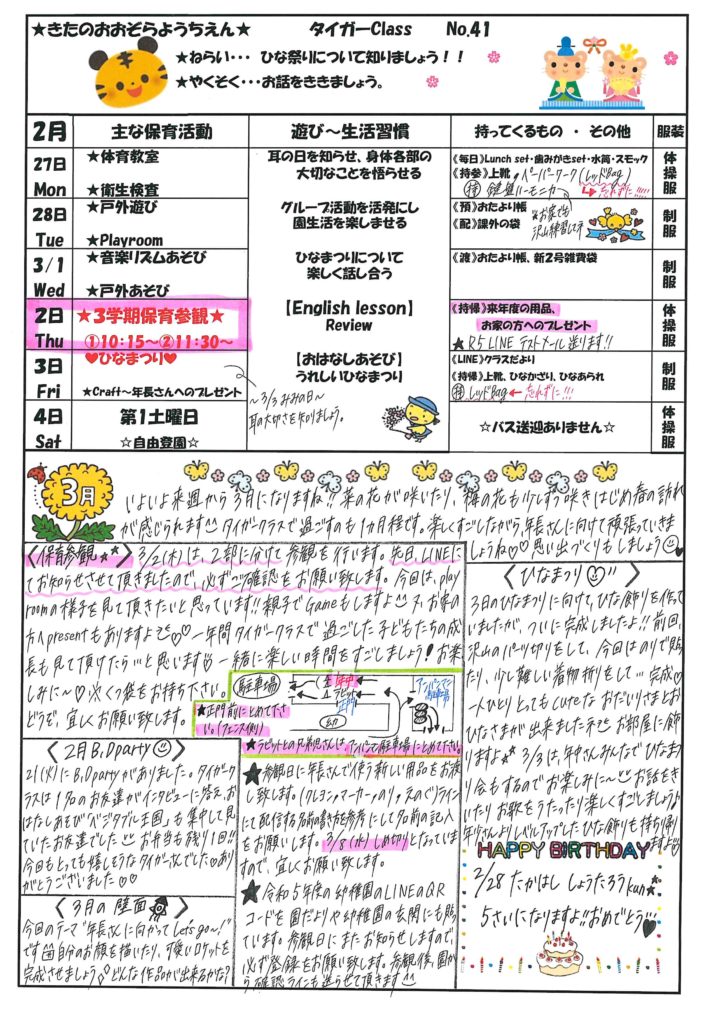 ★きたのおおぞらようちえん★ タイガーClass No.41
★ねらい・・・ ひな祭りについて知りましょう！！
★やくそく・・・お話をききましょう。
2月 主な保育活動 遊び～生活習慣 持ってくるもの ・ その他 服装
27日 Mon
★体育教室
★衛生検査
耳の日を知らせ、身体各部の
大切なことを悟らせる
《毎日》Lunch set・歯みがきset・水筒・スモック
《持参》上靴、ペーパーワーク(レッドBag)
鍵盤ハーモニカ→忘れずに!!!!!
体操服
28日 Tue
★戸外遊び
★Playroom
グループ活動を活発にし
園生活を楽しませる
《預》おたより帳
《配》課外の袋
★お家でも
沢山練習してネ
制服
3/1 Wed
★音楽リズムあそび
★戸外あそび
ひなまつりについて
楽しく話し合う
《渡》おたより帳、新2号雑費袋
制服
2日 Thu
★3学期保育参観★
①10：15～②11:30～
【English lesson】
Review
《持帰》来年度の用品、
お家の方へのプレゼント
★R5 LINE テストメール送ります!!
体操服
3日 Fri
♥ひなまつり♥
★Craft～年長さんへのプレゼント
【おはなしあそび】
うれしいひなまつり
～3/3 みみの日～
耳の大切さを知りましょう。
《LINE》クラスだより
《持帰》上靴、ひなかざり、ひなあられ
レッドBag←忘れずに!!!
制服
4日 Sat
第1土曜日
☆自由登園☆
☆バス送迎ありません☆
体操服
3月
いよいよ来週から3月になりますね!!菜の花が咲いたり、梅の花も少しずつ咲きはじめ春の訪れ
が感じられます タイガークラスで過ごすのも1カ月程です。楽しくすごしながら、年長さんに向けて頑張っていきま
しょうね♡♡思い出づくりもしましょう
〈保育参観★★〉 3/2(木)は、2部に分けて参観を行います。先日、LINEに
てお知らせさせて頂きましたので、必ずご確認をお願い致します。今回は、play
roomの様子を見て頂きたいと思っています!!親子でGameもしますよ 又、お家の
方へpresentもありますよ♡♡一年間タイガークラスで過ごした子どもたちの成
長も見て頂けたらいいと思います 一緒に楽しい時間をすごしましょう!お楽
しみに～♡※くつ袋をお持ち下さい。
どうぞ、宜しくお願い致します。
駐車場
正門
★正門前にとめて下さ
い。(フェンス側)
アンパンマン駐車場
★ラビットの兄弟児さんは、アンパンマン駐車場にとめて下さい。
〈2月B,Dparty〉
21(火)にB,Dpartyがありました。タイガーク
ラスは1名のお友達がインタビューに答え、お
はなしあそび"ベジタブル王国"も集中して見
ていたお友達でした お弁当も残り1回!!
今回もとっても嬉しそうなタイガーさんでした♡あり
がとうございました♡♡
〈3月の壁面〉
今回のテーマ"年長さんに向かってLet's go～!"
です 自分のお顔を描いたり、可愛いロケットを
完成させましょう どんな作品が出来るかな？
★参観日に年長さんで使う新しい用品をお渡
し致します。(クレヨン,マーカー,のり,えのぐ)ライン
にて配信する名前の書き方を参考にして名前の記入
をお願いします。3/8(水)しめ切りとなっていま
すので、宜しくお願い致します。
★令和5年度の幼稚園のLINEのQR
コードを園だよりや幼稚園の玄関にも貼っ
ています。参観日にまたお知らせしますので、
必ず登録をお願い致します。参観後、園か
ら確認ラインも送らせて頂きます
〈ひなまつり♡〉
3日のひなまつりに向けて、ひな飾りを作って
いましたが、ついに完成しましたよ!!前回、
沢山のパーツ切りをして、今回はのりで貼っ
たり、少し難しい着物折りをして…完成♡
一人ひとりとってもcuteなおだいりさまとおひ
なさまが出来ましたネ お部屋に飾
りますよ 3/3は、年中さんみんなでひなまつ
り会もするのでお楽しみに～ お話をき
いたりお歌をうたったり楽しくすごしましょう
年少さんよりレベルアップしたひな飾りも持ち帰り
ますよ
HAPPY BIRTHDAY
2/28 たかはし しょうたろうkun★
5さいになりますよ!!おめでとう